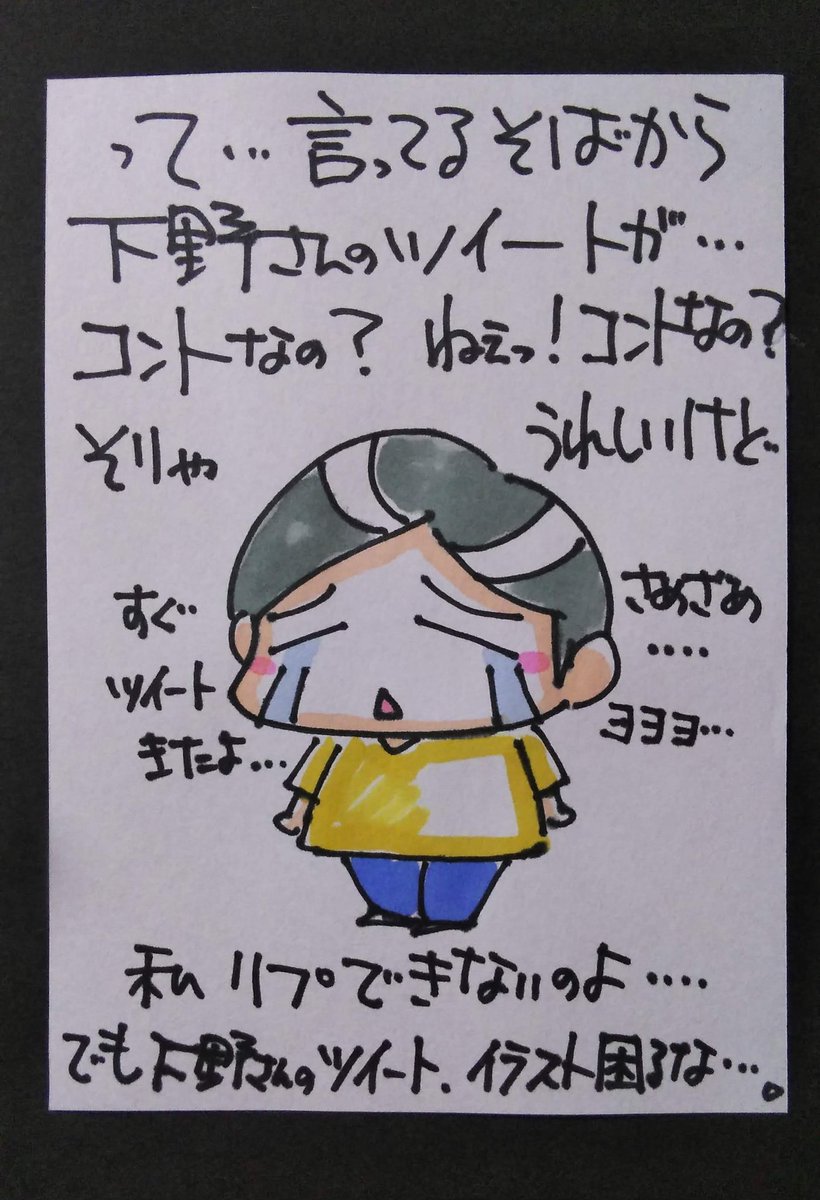 って…言ってるそばから
下野さんのツイートが…
コントなの？ ねぇっ！コントなの？
そりゃ
うれしいけど..
すぐ
ツイート
きたよ…
さめざめ
....
ヨヨヨ…
私 リプできないのよ....
でも下野さんのツイート、イラスト困るな…。